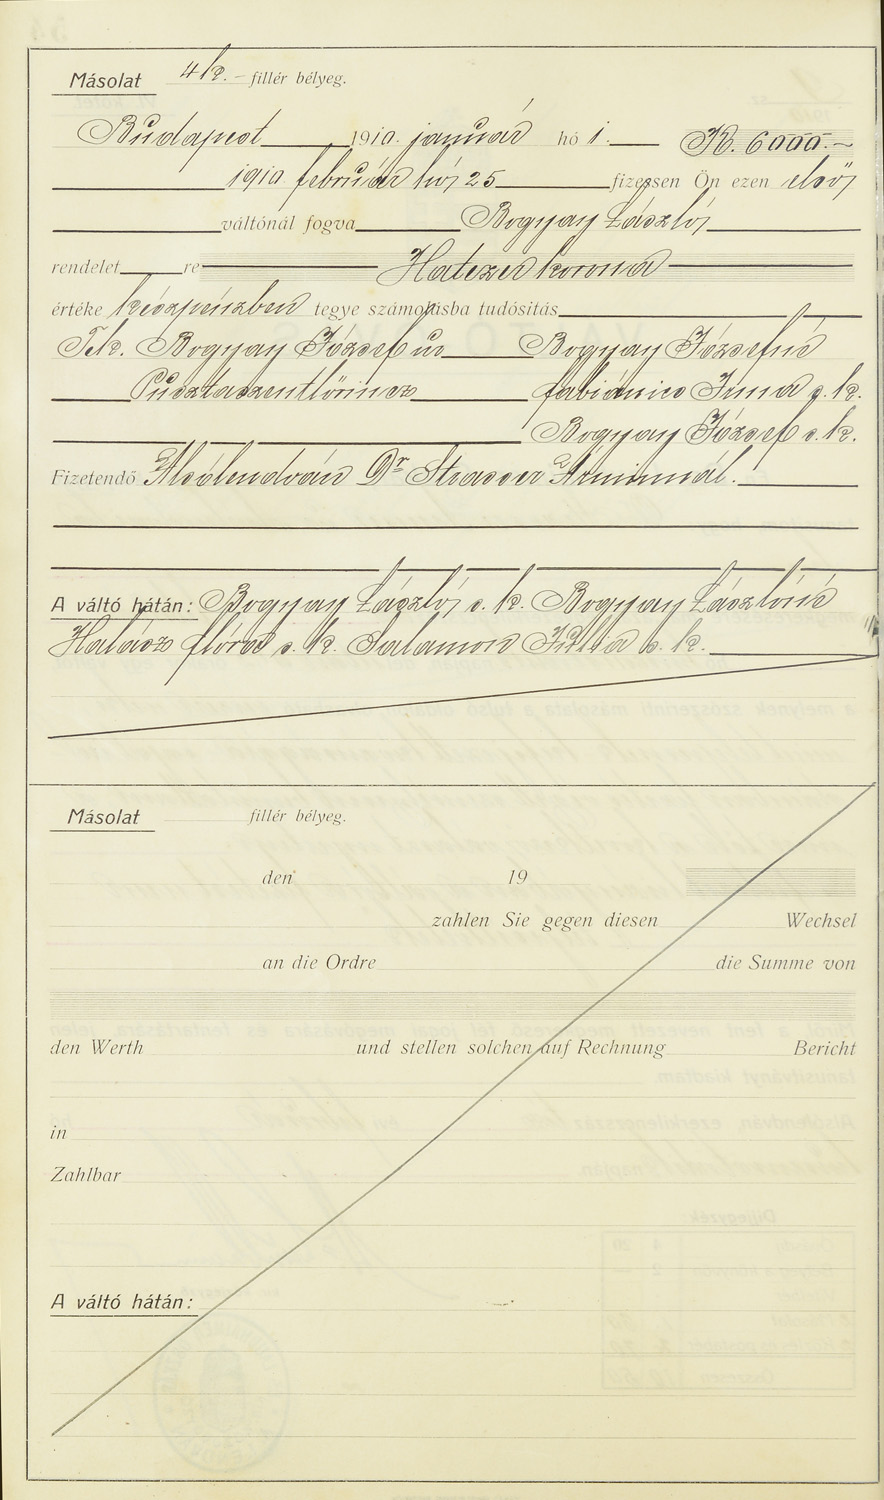 Másolat 4 k. – fillér bélyeg.
Budapest 1910. január hó 1. K. 6000.–
1910 február hó 25 fizessen Ön ezen első
váltónál fogva Bogyay László
rendelet re Hatezer korona
értéke készpénzben tegye számolásba tudósítás
Tek. Bogyay József úr Bogyay Józsefné
Pusztaszentlőrincz fabiánics Irma s. k.
Bogyay József s. k.
Fizetendő Alsólendván Dr Strasser Árminnál.
A váltó hátán: Bogyay László s. k. Bogyay Lászlóné
Halász flóra s. k. Salamon Júlia s. k.
Másolat fillér bélyeg.
den 19
zahlen Sie gegen diesen Wechsel
an die Ordre die Summe von
den Werth und stellen solchen auf Rechnung Bericht
in
Zahlbar
A váltó hátán: